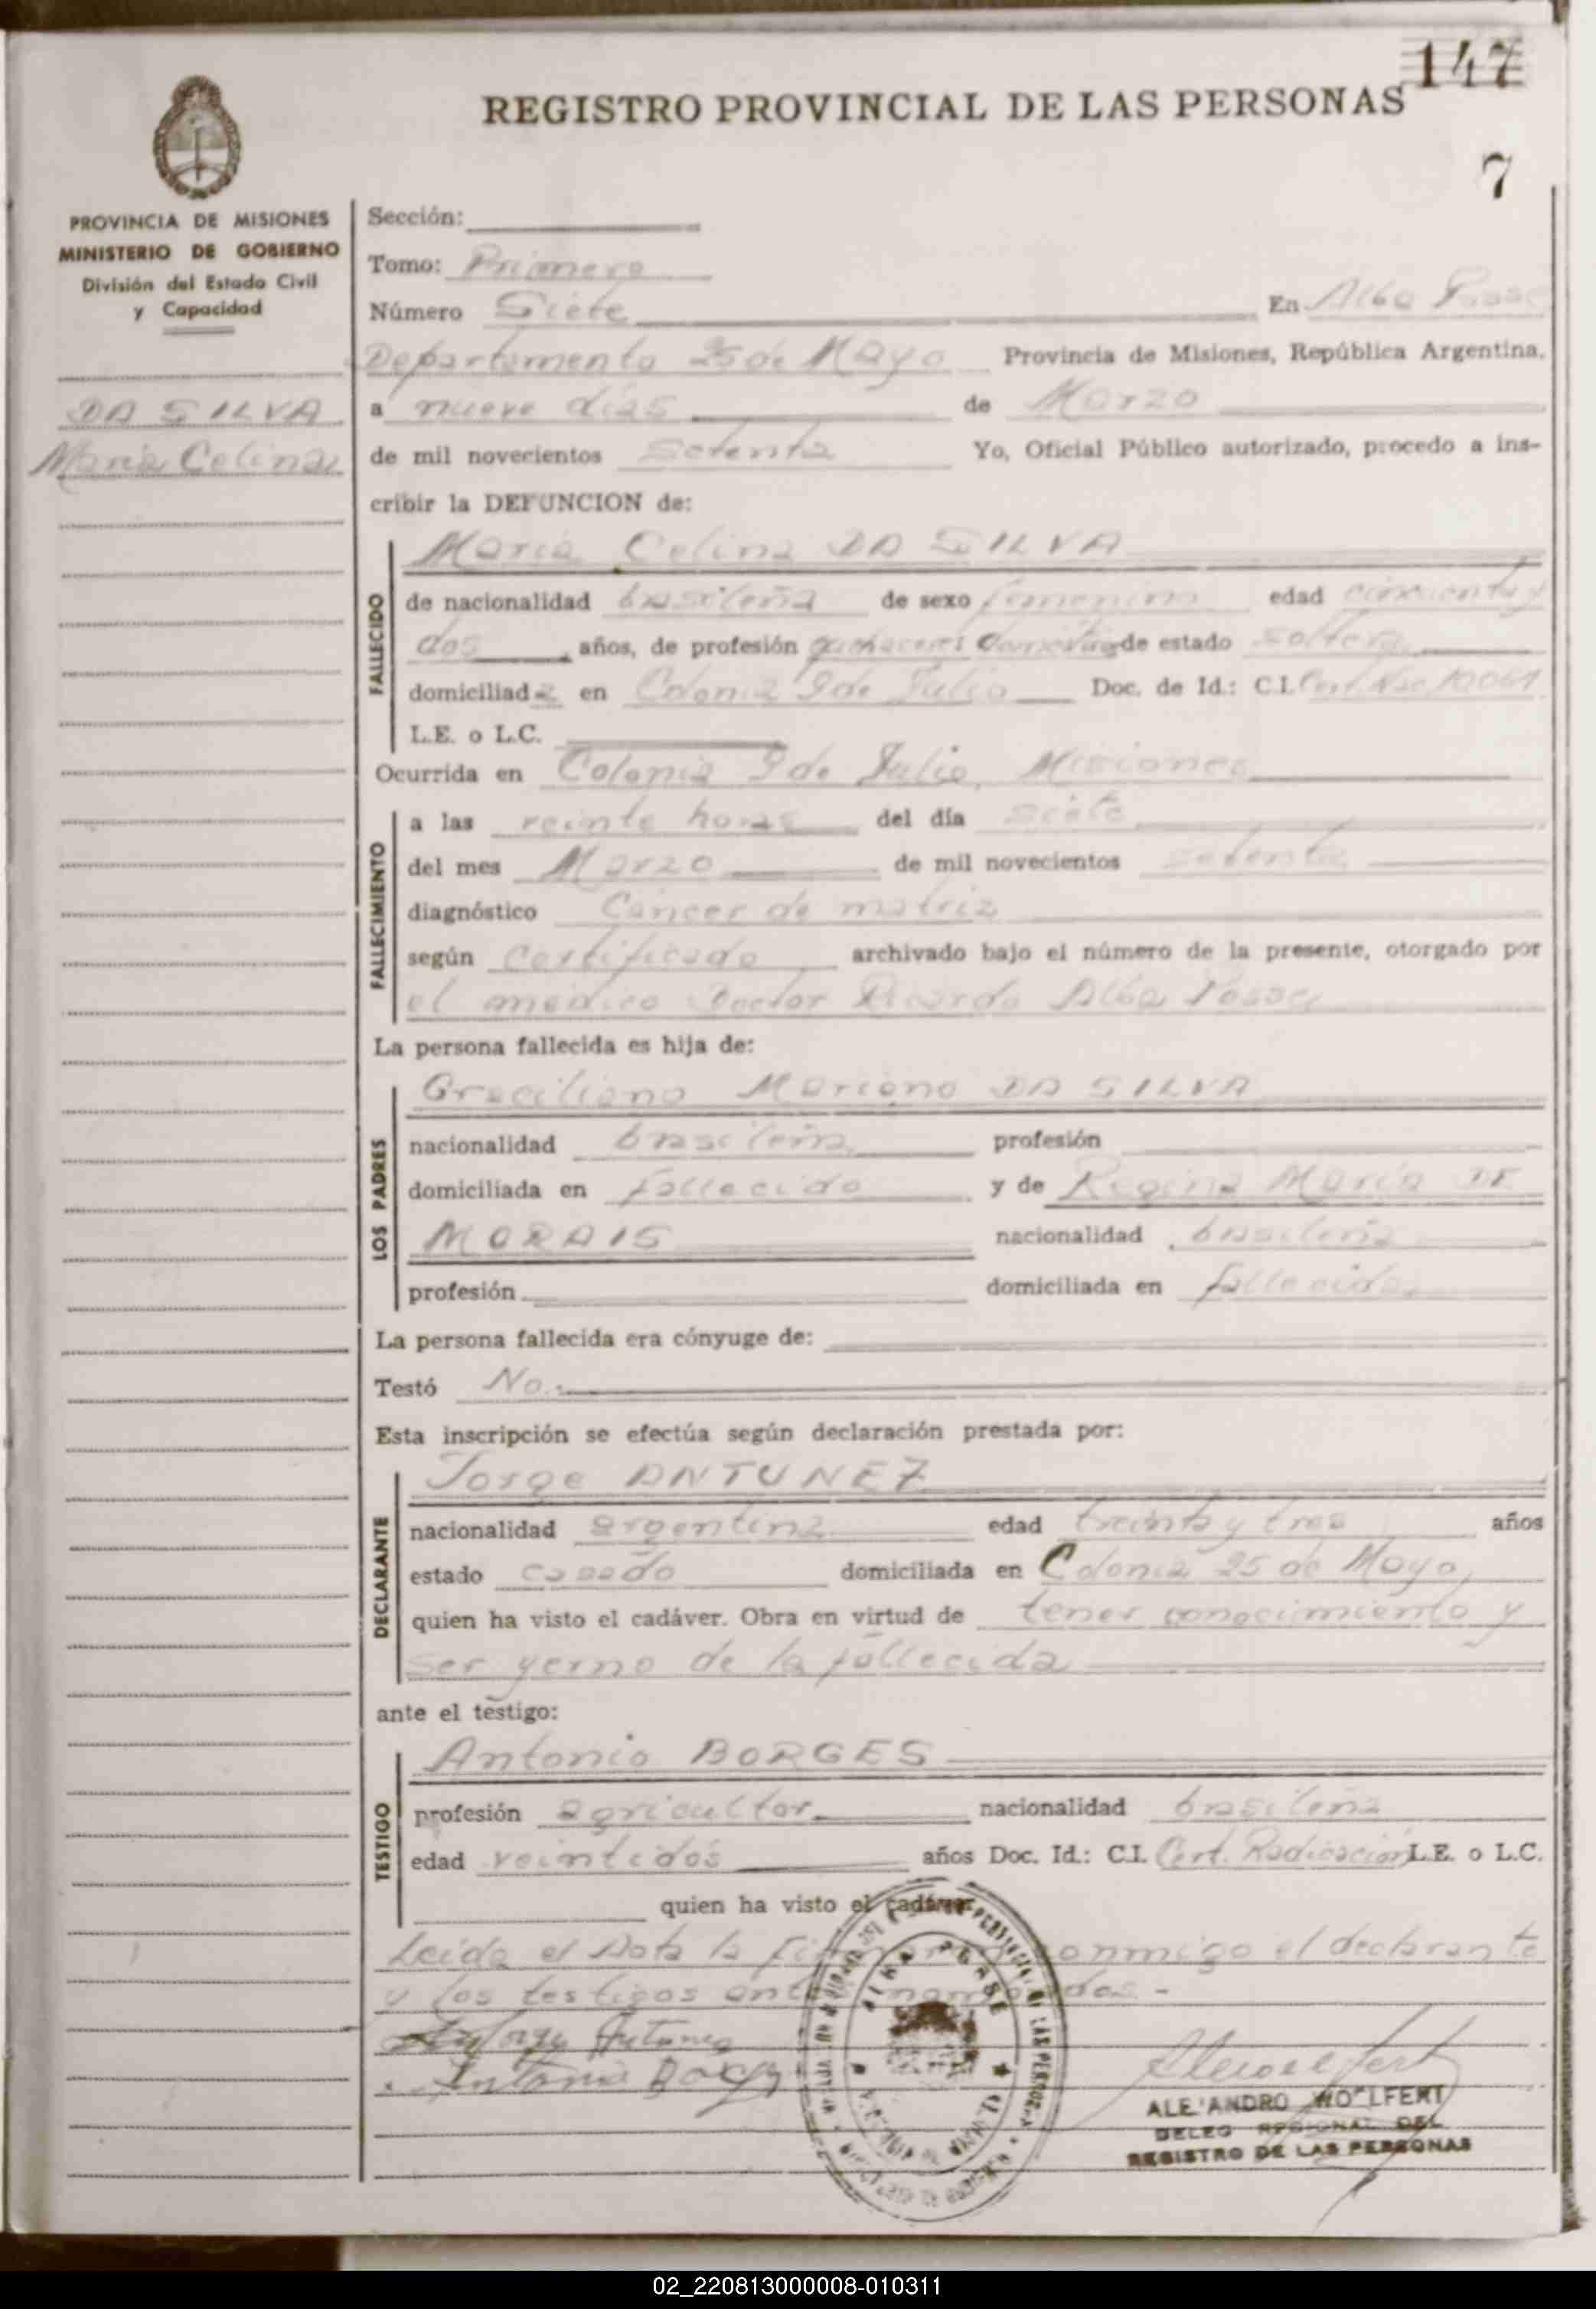 147
REGISTRO PROVINCIAL DE LAS PERSONAS
7
PROVINCIA DE MISIONES
MINISTERIO DE GOBIERNO
División del Estado Civil
y Capacidad
DA SILVA
María Celina
Sección:
Tomo: Primero
Número Siete En Alba Posse
Departamento 25 de Mayo Provincia de Misiones, República Argentina,
a nueve días de Marzo
de mil novecientos setenta Yo, Oficial Público autorizado, procedo a ins-
cribir la DEFUNCION de:
María Celina DA SILVA
FALLECIDO
de nacionalidad brasileña de sexo femenino edad cincuenta y
dos años, de profesión quehaceres domésticos de estado soltera
domiciliada en Colonia 9 de Julio Doc. de Id.: C.I. Cert. Nac. 10061
L.E. o L.C.
Ocurrida en Colonia 9 de Julio, Misiones
FALLECIMIENTO
a las veinte horas del día siete
del mes Marzo de mil novecientos setenta
diagnóstico Cáncer de matriz
según certificado archivado bajo el número de la presente, otorgado por
el médico Doctor Ricardo Alba Posse
La persona fallecida es hija de:
LOS PADRES
Graciliano Mariano DA SILVA
nacionalidad brasileña profesión
domiciliada en fallecido y de Regina María DE
MORAIS nacionalidad brasileña
profesión domiciliada en fallecida
La persona fallecida era cónyuge de:
Testó No.
Esta inscripción se efectúa según declaración prestada por:
DECLARANTE
Jorge ANTUNEZ
nacionalidad argentina edad treinta y tres años
estado casado domiciliada en Colonia 25 de Mayo,
quien ha visto el cadáver. Obra en virtud de tener conocimiento y
ser yerno de la fallecida
ante el testigo:
TESTIGO
Antonio BORGES
profesión agricultor nacionalidad brasileña
edad veintidós años Doc. Id.: C.I. Cert. Radicación L.E. o L.C.
quien ha visto el cadáver
Leída el Acta la conmigo el declarante
y los testigos
Jorge Antunez
Antonio
ALEJANDRO WOLFERT
DELEG REGIONAL DEL
REGISTRO DE LAS PERSONAS
02_220813000008-010311